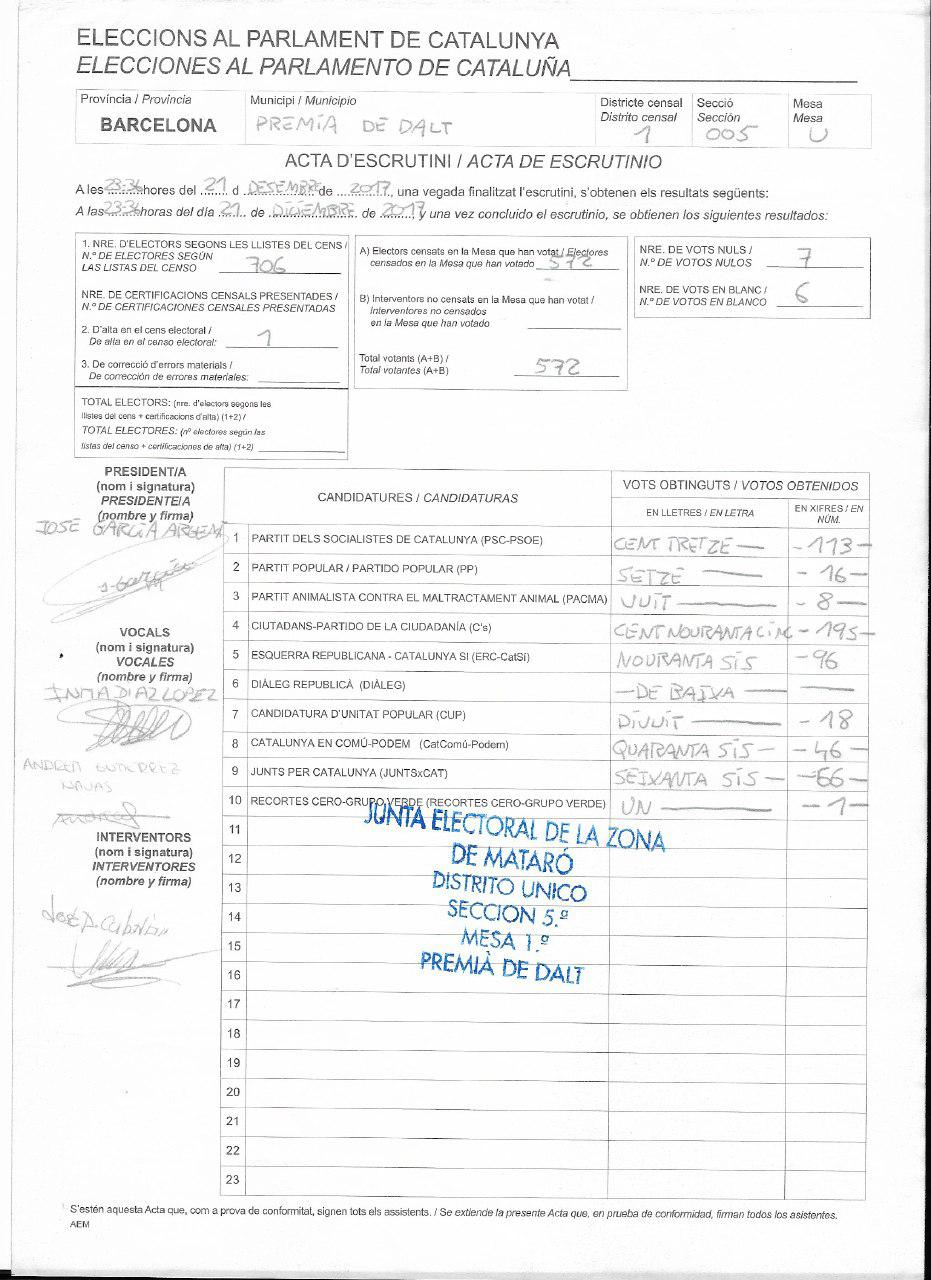 ELECCIONS AL PARLAMENT DE CATALUNYA
ELECCIONES AL PARLAMENTO DE CATALUÑA
Província / Provincia
BARCELONA
Municipi / Municipio
PREMIÀ DE DALT
Districte censal
Distrito censal
1
Secció
Sección
005
Mesa
Mesa
U
ACTA D'ESCRUTINI / ACTA DE ESCRUTINIO
A les 23:34 hores del 21 d DESEMBRE de 2017, una vegada finalitzat l'escrutini, s'obtenen els resultats següents:
A las 23:34 horas del día 21 de DICIEMBRE de 2017 y una vez concluido el escrutinio, se obtienen los siguientes resultados:
1. NRE. D'ELECTORS SEGONS LES LLISTES DEL CENS /
N.º DE ELECTORES SEGÚN
LAS LISTAS DEL CENSO 706
NRE. DE CERTIFICACIONS CENSALS PRESENTADES /
N.º DE CERTIFICACIONES CENSALES PRESENTADAS
2. D'alta en el cens electoral /
De alta en el censo electoral: 1
3. De correcció d'errors materials /
De corrección de errores materiales:
TOTAL ELECTORS: (nre. d'electors segons les
llistes del cens + certificacions d'alta) (1+2) /
TOTAL ELECTORES: (nº electores según las
listas del censo + certificaciones de alta) (1+2)
A) Electors censats en la Mesa que han votat / Electores
censados en la Mesa que han votado 572
B) Interventors no censats en la Mesa que han votat /
Interventores no censados
en la Mesa que han votado
Total votants (A+B) /
Total votantes (A+B) 572
NRE. DE VOTS NULS /
N.º DE VOTOS NULOS 7
NRE. DE VOTS EN BLANC /
N.º DE VOTOS EN BLANCO 6
PRESIDENT/A
(nom i signatura)
PRESIDENTE/A
(nombre y firma)
JOSÉ GARCÍA
J. García
VOCALS
(nom i signatura)
VOCALES
(nombre y firma)
INMA DIAZ LOPEZ
NAVAS
INTERVENTORS
(nom i signatura)
INTERVENTORES
(nombre y firma)
CANDIDATURES / CANDIDATURAS
VOTS OBTINGUTS / VOTOS OBTENIDOS
EN LLETRES / EN LETRA
EN XIFRES / EN
NÚM.
1 PARTIT DELS SOCIALISTES DE CATALUNYA (PSC-PSOE) CENT TRETZE — - 113 -
2 PARTIT POPULAR / PARTIDO POPULAR (PP) SETZE — - 16 -
3 PARTIT ANIMALISTA CONTRA EL MALTRACTAMENT ANIMAL (PACMA) VUIT — - 8 —
4 CIUTADANS-PARTIDO DE LA CIUDADANÍA (C's) CENT NOURANTA CINC - 195 -
5 ESQUERRA REPUBLICANA - CATALUNYA SI (ERC-CatSí) NOURANTA SIS - 96
6 DIÀLEG REPUBLICÀ (DIÀLEG) — DE BAIXA — —
7 CANDIDATURA D'UNITAT POPULAR (CUP) DIVUIT — - 18
8 CATALUNYA EN COMÚ-PODEM (CatComú-Podem) QUARANTA SIS - - 46 -
9 JUNTS PER CATALUNYA (JUNTSxCAT) SEIXANTA SIS — - 66 -
10 RECORTES CERO-GRUPO VERDE (RECORTES CERO-GRUPO VERDE) UN — - 1 -
11
12
13
14
15
16
17
18
19
20
21
22
23
JUNTA ELECTORAL DE LA ZONA
DE MATARÓ
DISTRITO UNICO
SECCION 5.ª
MESA 1.ª
PREMIÀ DE DALT
S'estén aquesta Acta que, com a prova de conformitat, signen tots els assistents. / Se extiende la presente Acta que, en prueba de conformidad, firman todos los asistentes.
AEM